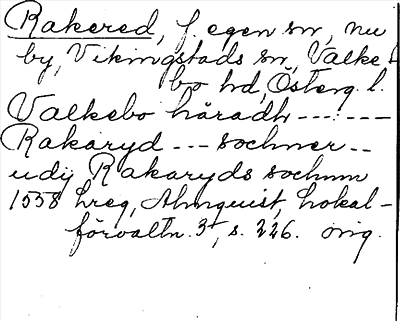 Rakered, f. egen sn, nu
by, Vikingstads sn, Valke-
bo hd, Österg. l.
Valkebo häradh ------
Rakaryd --- sochner --
udij Rakaryds sochnn
1558 hreg, Almquist, Lokal-
förvaltn. 3, s. 226. orig.